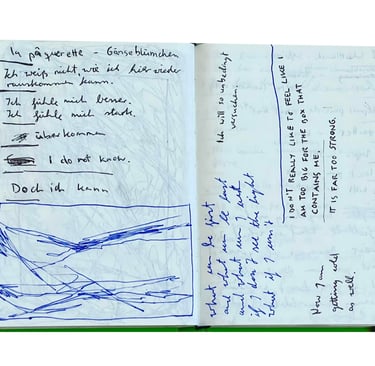 la pâquerette – Gänseblümchen
Ich weiß nicht, wie ich hier wieder
rauskommen kann.
Ich fühle mich besser.
Ich fühle mich stark.
überkommen
I do not know.
Doch ich kann
Ich will so unbedingt
versuchen.
I DON'T REALLY LIKE TO FEEL LIKE I
AM TOO BIG FOR THE BOX THAT
CONTAINS ME.
IT IS FAR TOO STRONG.
what can be
and what can be lost
and what can I
if I don't see the light
what if I can't
Now I am
getting cold
as well